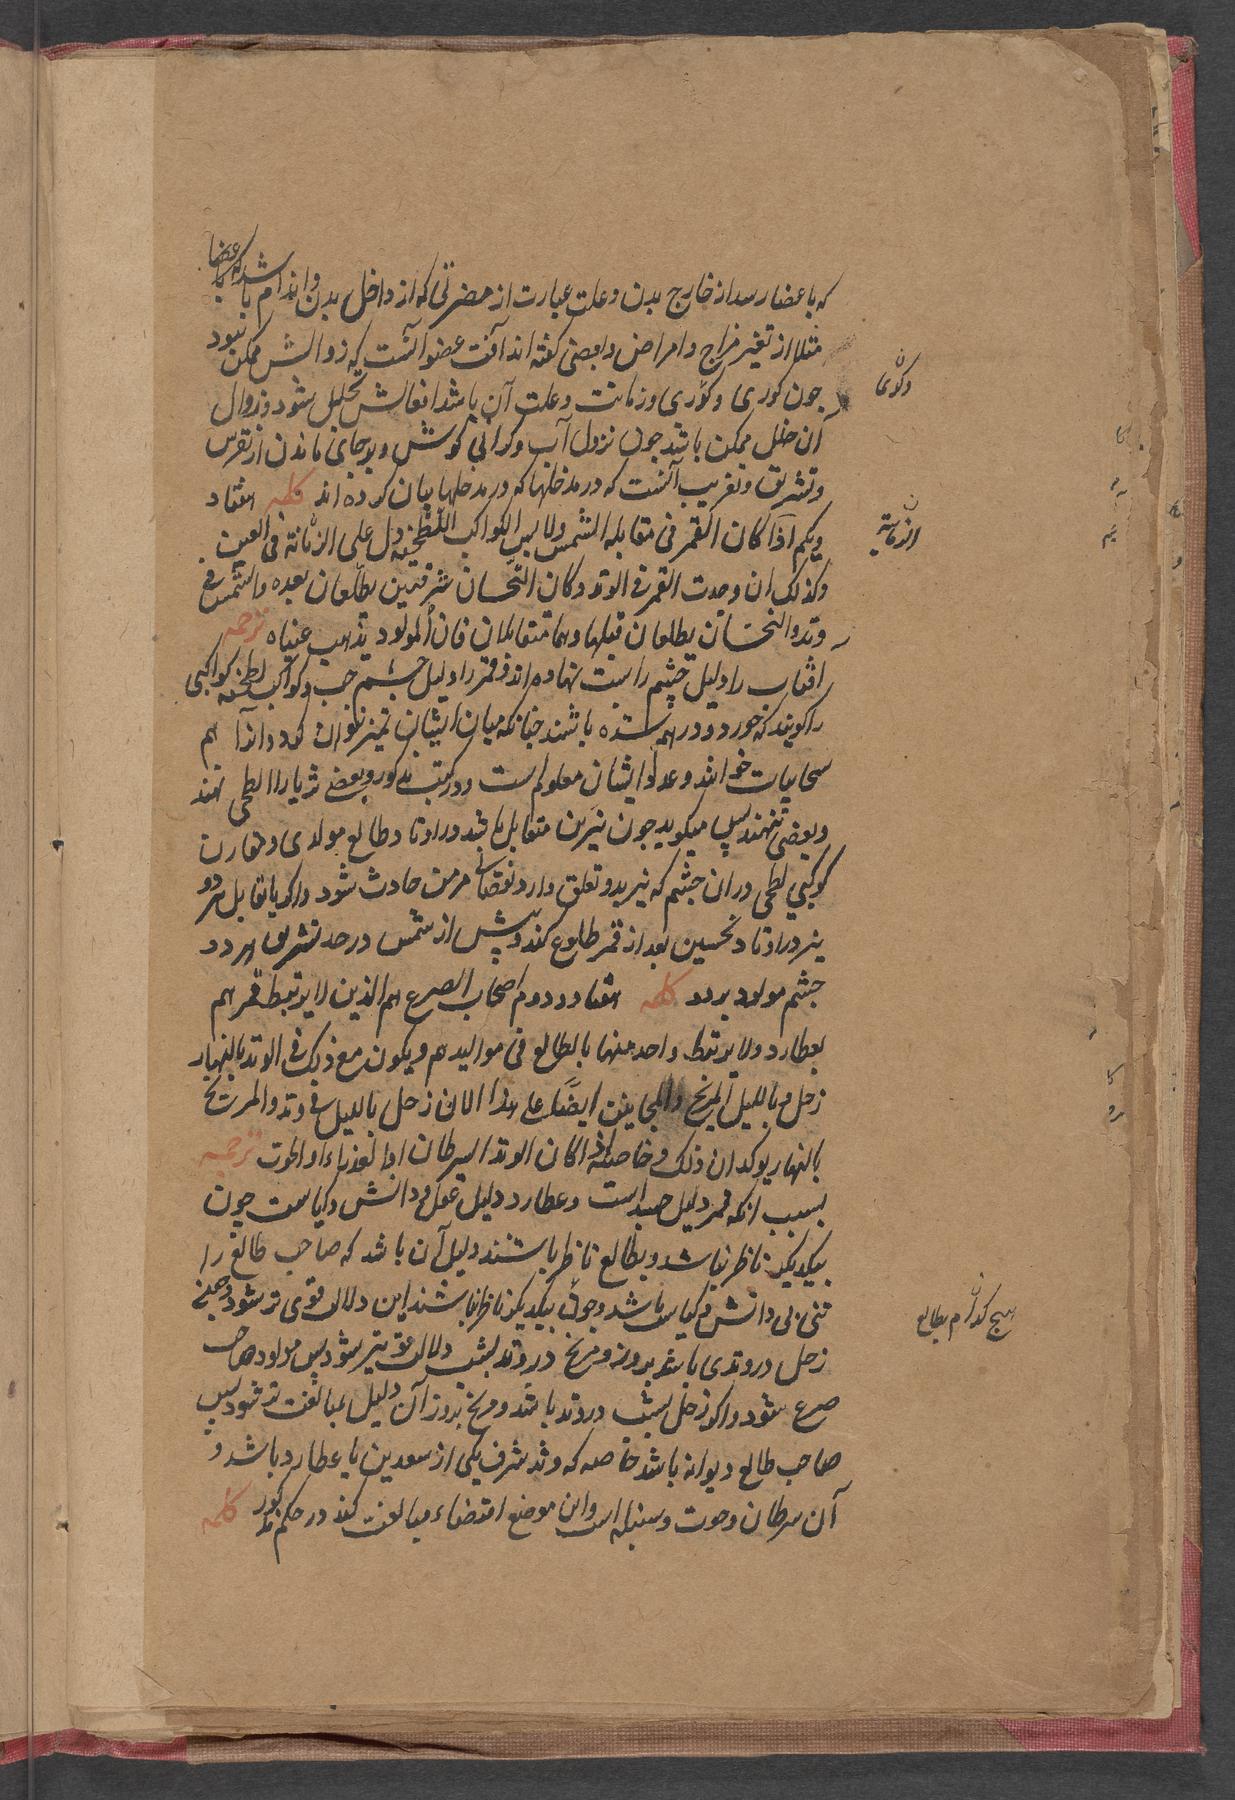 که باعضا رسد از خارج بدن و علت عبارت از مضرتی که از داخل بدن و اندام باشد که باعضا
مثلا از تغیر مزاج و امراض و بعضی کفته اند آفت عضو آنست که زوالش ممکن نبود
چون کوری و کوری و زمانت و علت آن باشد افعالش تحلیل شود و زوال
آن خلل ممکن باشد چون نزول آب و کرانی کوش و برجای ماندن از نقرس
و تشریق و تغریب آنست که در مدخلها که در مدخلها بیان کرده اند کلمه هفتاد
ویکم اذا کان القمر فی مقابله الشمس ولابس الکواکب اللطخیه دل علی الزمانة فی العین
وکذلک ان وجدت القمر فی الوتد وکان النحسان شرقیین یطلعان بعده والشمس فی
وتد والنحسان یطلعان قبلها وهما متقابلان فان المولود یذهب عیناه ترجمه
افتاب را دلیل چشم راست نهاده اند و قمر را دلیل چشم چپ و کواکب لطخیه کواکبی
را کویند که خورد و درهم شده باشند چنانکه میان ایشان تمیز نتوان کرد و آنرا هم
سحابیات خوانند و عدد ایشان معلوم است و در کتب مذکور و بعضی ثریا را لطخی نهند
و بعضی ننهند پس میکوید چون نیرین متقابل باشد در اوتاد و طالع مولدی و مقارن
کوکبی لطخی در ان چشم که نیر بدو تعلق دارد نقصانی مزمن حادث شود و اکر با تقابل هردو
نیر در اوتاد نحسین بعد از قمر طلوع کند و پیش از شمس در حد تشریق هردو
چشم مولود برود کلمه هفتاد و دوم اصحاب الصرع هم الذین لا یرتبط قمرهم
بعطارد ولا یرتبط واحد منهما بالطالع فی موالیدهم ویکون مع ذلک فی الوتد بالنهار
زحل وباللیل المریخ والمجانین ایضا علی هذا الا ان زحل باللیل فی وتد والمریخ
بالنهار یوکد ان ذلک و خاصة اذا کان الوتد السرطان او العذراء او الحوت ترجمه
بسبب آنکه قمر دلیل جسد است و عطارد دلیل عقل و دانش و کیاست چون
بیکدیکر ناظر نباشد و بطالع ناظر باشند دلیل آن باشد که صاحب طالع را
تنی بی دانش و کیاست باشد و چون بیکدیکر ناظر نباشند این دلالت قوی تر شود و چون
زحل در وتدی باشد بروز و مریخ در وتد بشب دلالت قویتر شود پس مولود صاحب
صرع شود و اکر زحل بشب در وتد باشد و مریخ بروز آن دلیل بمبالغت تر شود پس
صاحب طالع دیوانه باشد خاصه که وتد شرف یکی از سعدین یا عطارد باشد و
آن سرطان و حوت و سنبله است و این موضع اقتضاء مبالغت کند در حکم مذکور کلمه
الزمانیة
هیچ کدام بطالع